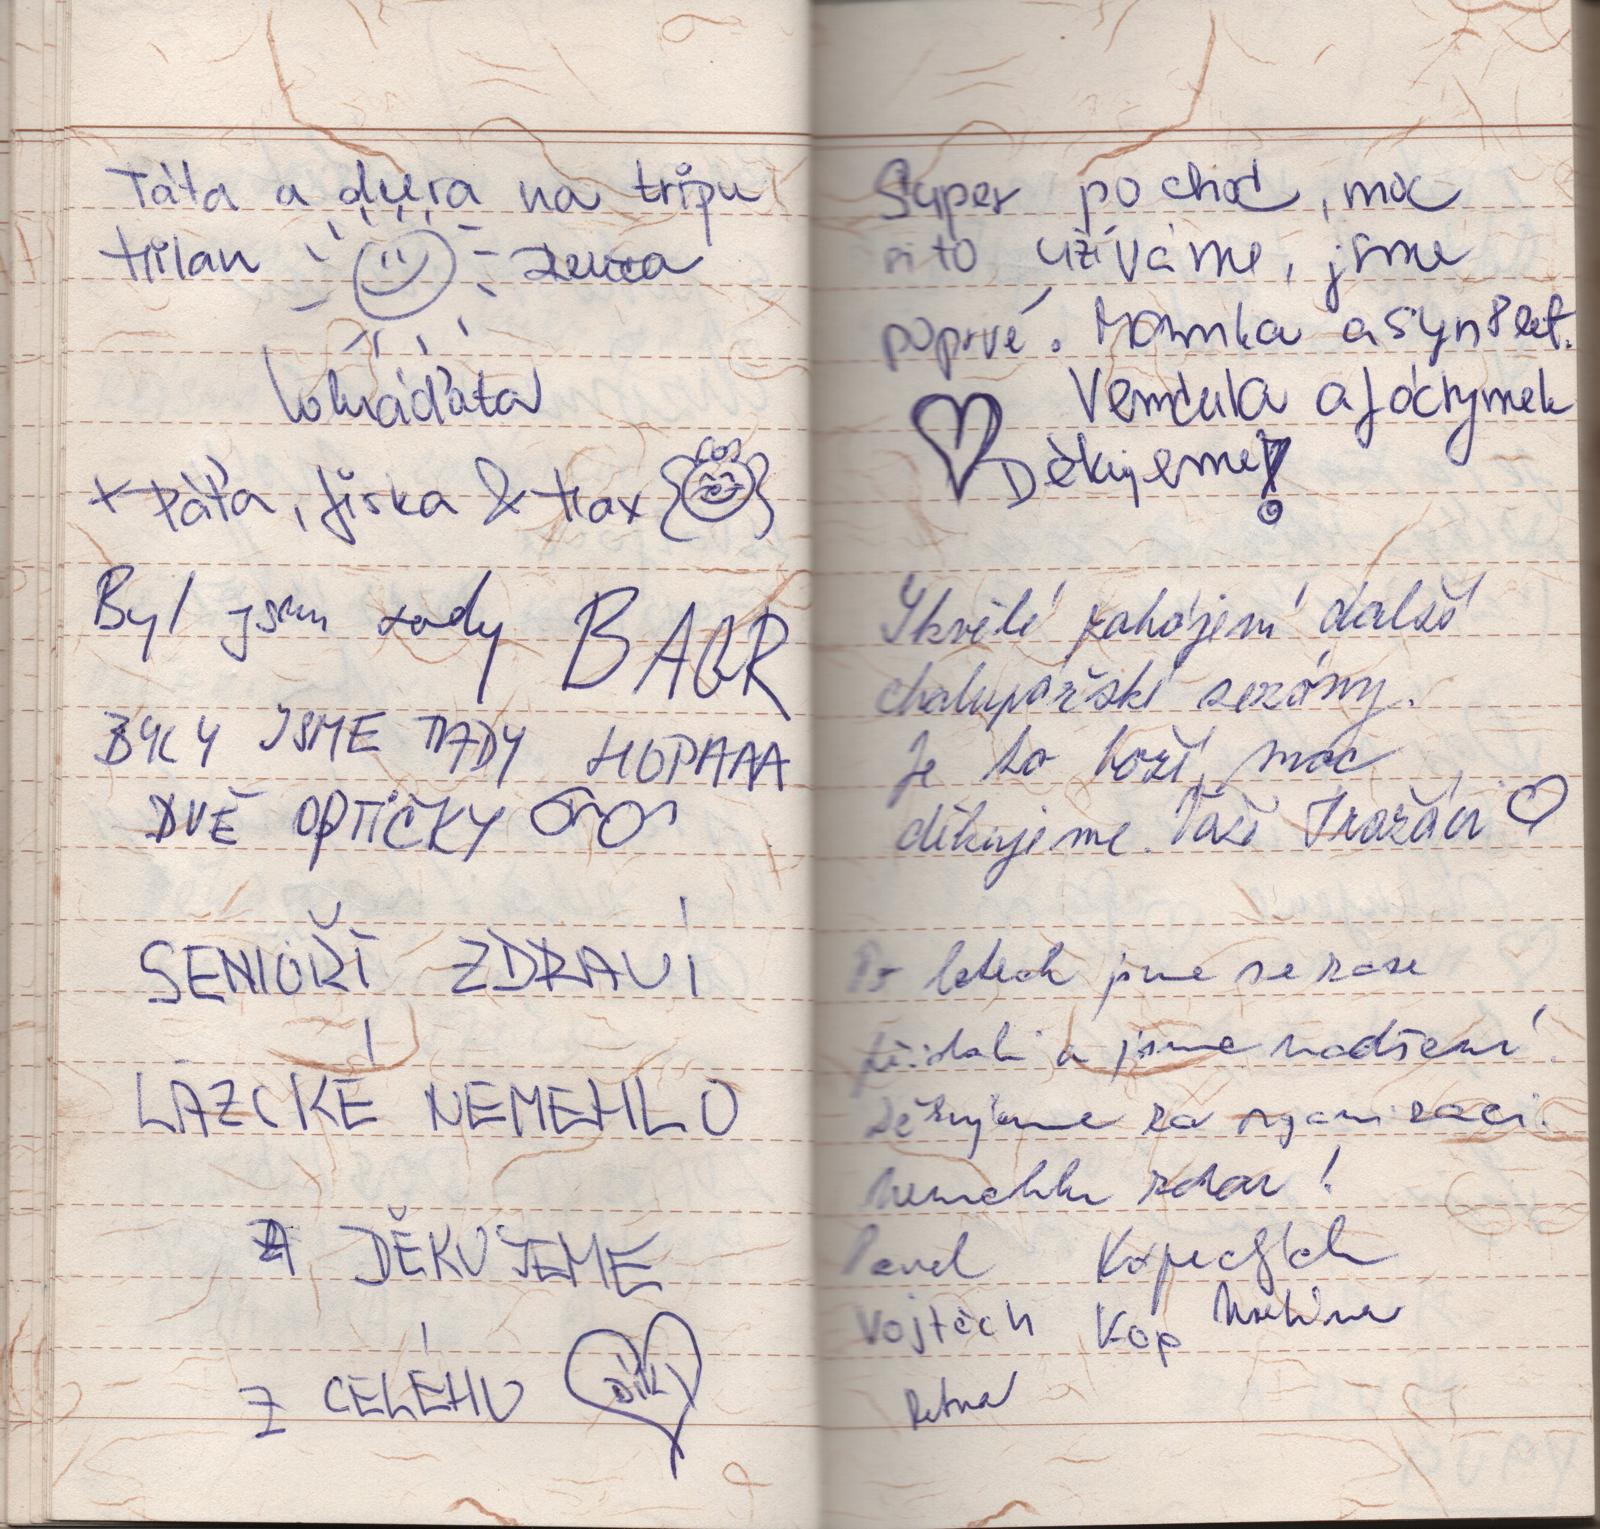 Táta a dcera na tripu
Milan
+ Páťa, Jirka & Max
Byl jsem tady BAGR
BYLY JSME TADY HOPAAA
DVĚ OPTIČKY
SENIOŘI ZDRAVÍ
LÁZCKÉ NEMEHLO
A DĚKUJEME
Z CELÉHO
DÍKY
Super pochod, moc
si to užíváme, jsme
poprvé. Maminka a syn 8 let.
Vendula a Jáchymek
Děkujeme!
Skvělé zahájení další
chalupářské sezóny.
Je to boží, moc
děkujeme. Vaši Pražáci
Po letech jsme se zase
přidali a jsme nadšení.
Děkujeme za organizaci.
Nemehlu zdar!
Pavel
Vojtěch Kop
Petra